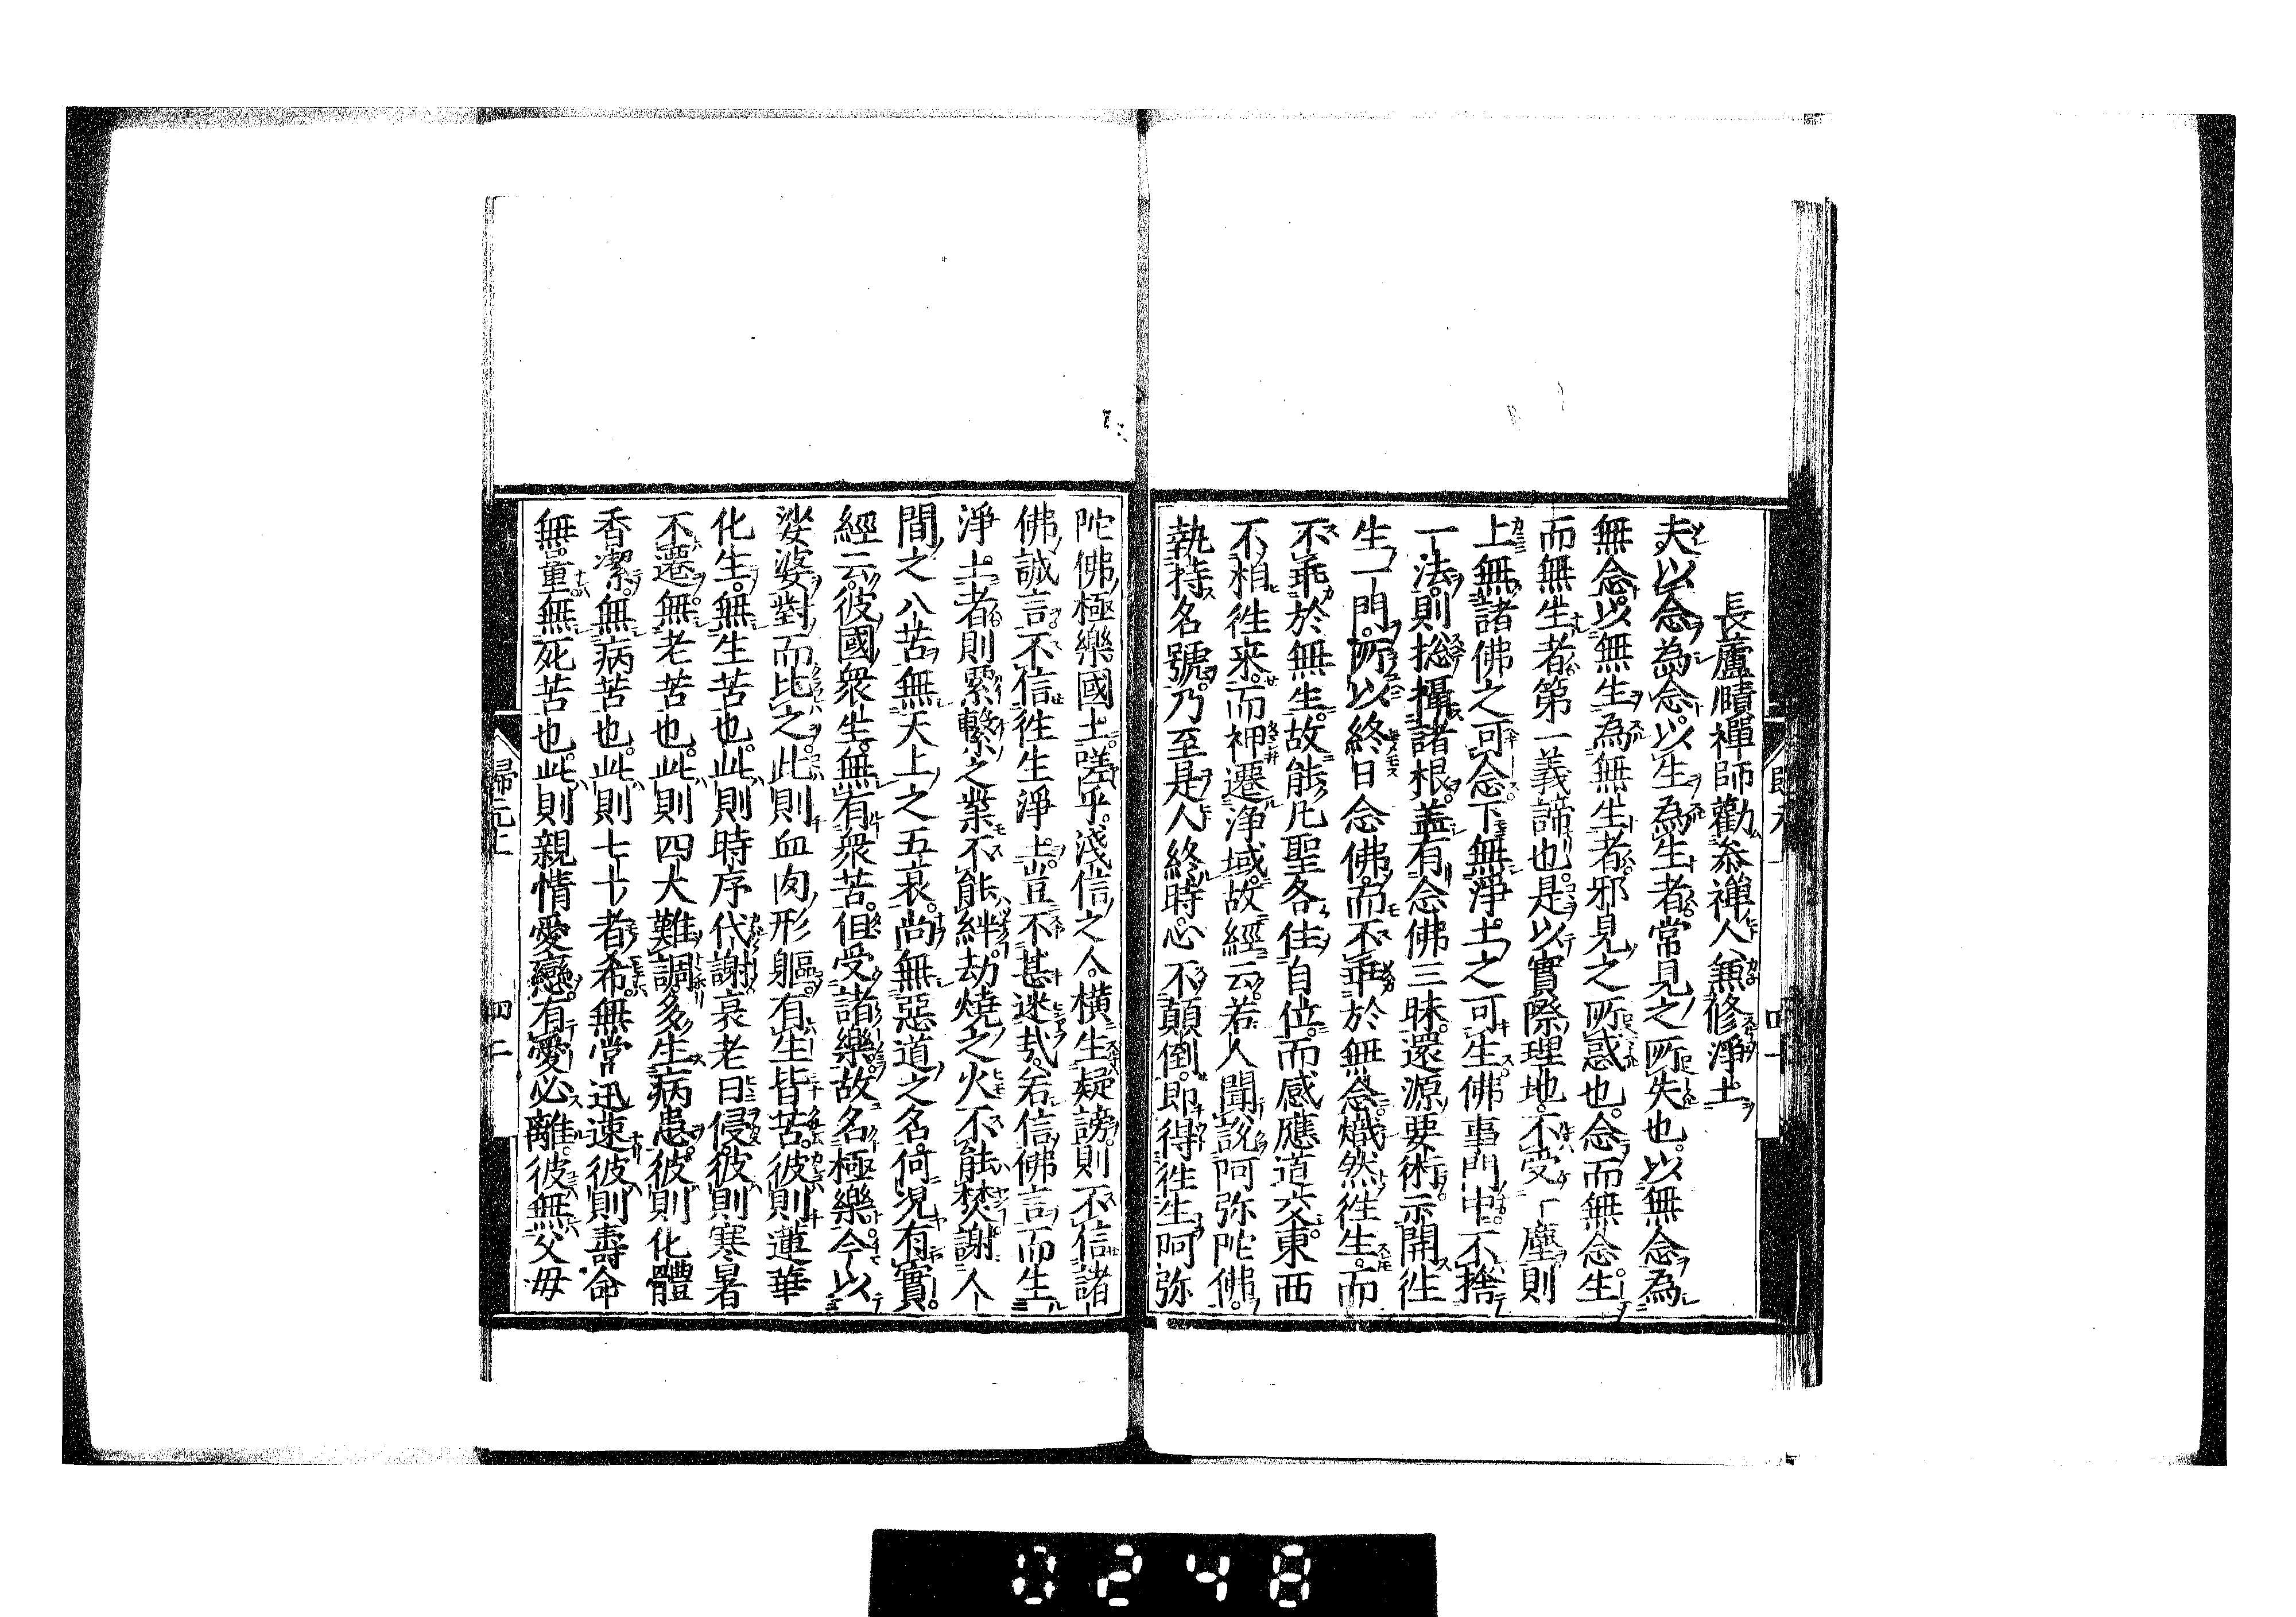 長蘆賾禪師勸叅禪人兼修淨土
夫以念為念。以生為生者。常見之所失也。以無念為
無念。以無生為無生者。邪見之所惑也。念而無念。生
而無生者。第一義諦也。是以實際理地。不受一塵。則
上無諸佛之可念。下無淨土之可生。佛事門中。不捨
一法。則揔攝諸根。盖有念佛三昧。還源要術。示開徃
生一門。所以終日念佛。而不乖於無念。熾然徃生。而
不乖於無生。故能凡聖各住自位。而感應道交。東西
不相徃来。而神遷淨域。故經云。若人聞說阿弥陀佛。
執持名號。乃至是人終時。心不顛倒。即得徃生阿弥
陀佛極樂國土。嗟乎。淺信之人。横生疑謗。則不信諸
佛誠言。不信徃生淨土。豈不甚迷哉。若信佛言而生
淨土者。則累繫之業不能絆。劫燒之火不能焚。謝人
間之八苦。無天上之五衰。尚無惡道之名。何况有實。
經云。彼國衆生。無有衆苦。但受諸樂。故名極樂。今以
娑婆對而比之。此則血肉形軀。有生皆苦。彼則蓮華
化生。無生苦也。此則時序代謝。衰老日侵。彼則寒暑
不遷。無老苦也。此則四大難調。多生病患。彼則化體
香潔。無病苦也。此則七十者希。無常迅速。彼則壽命
無量。無死苦也。此則親情愛戀。有愛必離。彼無父母
歸元上
四二
0248